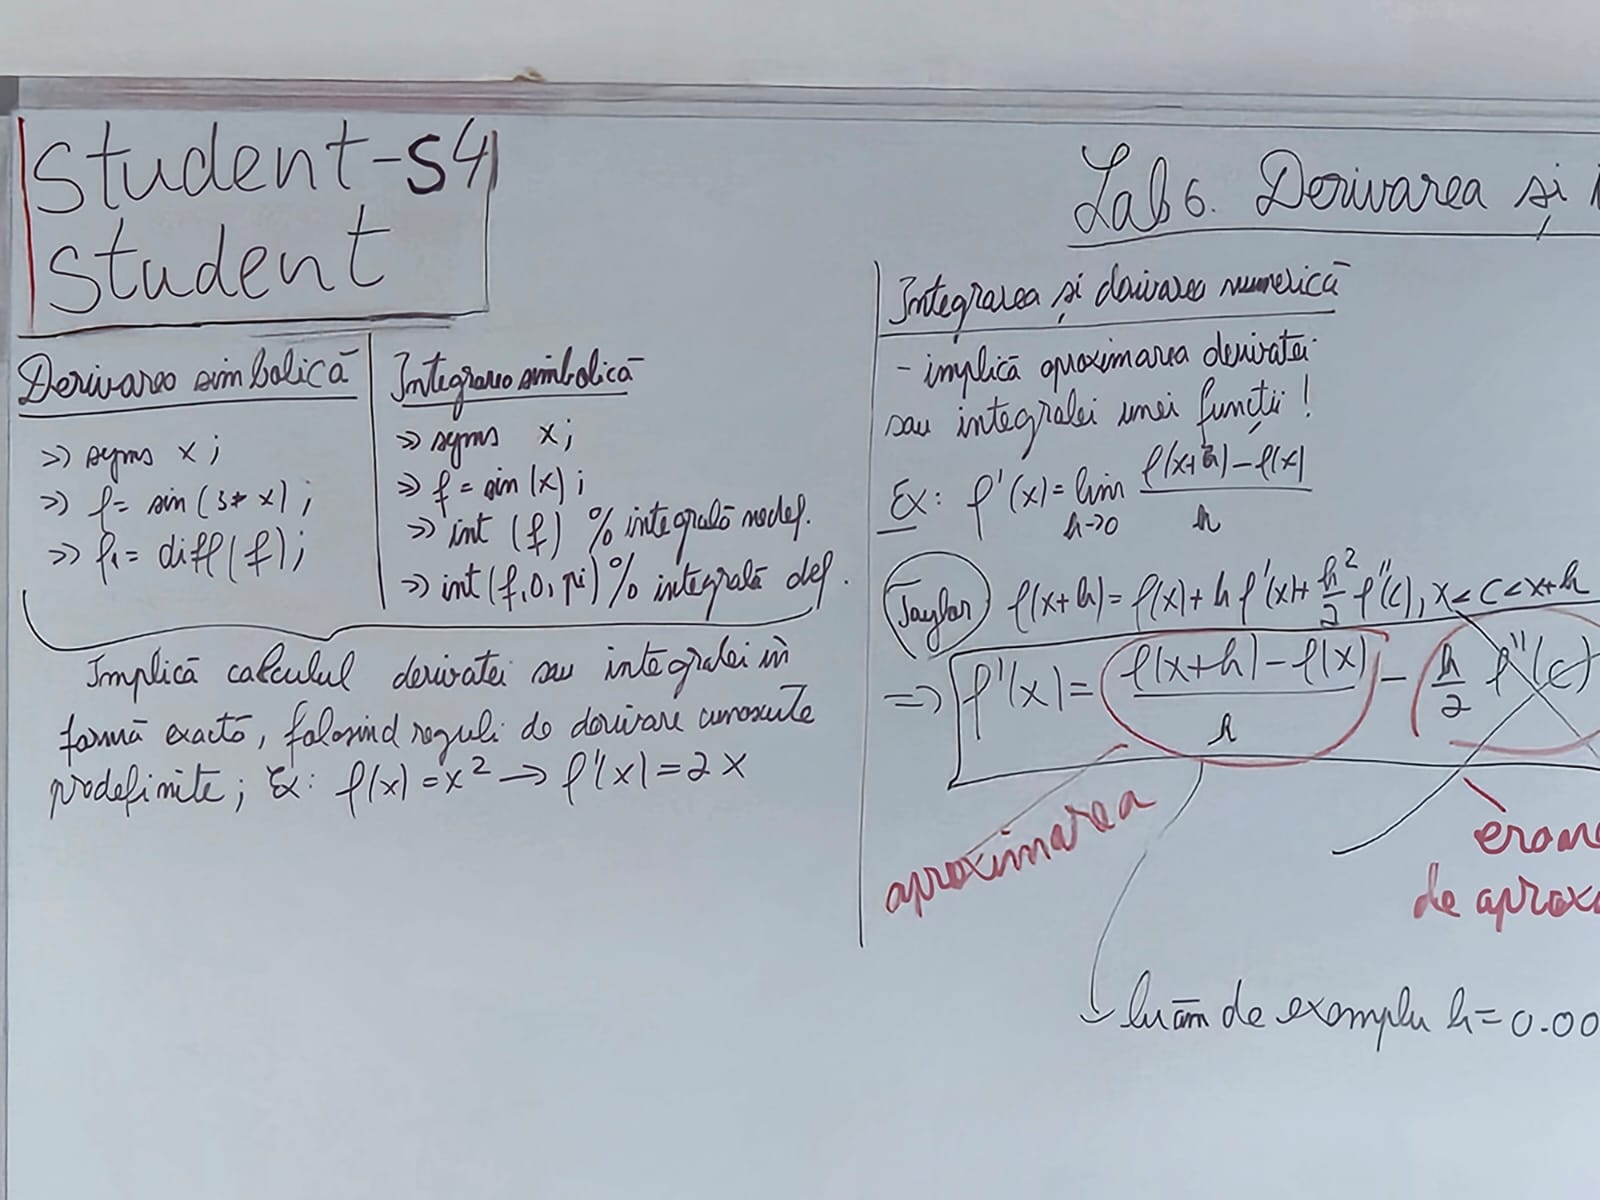 Student-S4
Student
Lab 6. Derivarea și
Derivarea simbolică
>> syms x ;
>> f= sin(3* x) ;
>> f1= diff(f) ;
Integrarea simbolică
>> syms x ;
>> f= sin(x) ;
>> int (f) % integrală nedef.
>> int(f,0,pi) % integrală def.
Implică calculul derivatei sau integralei în
formă exactă, folosind reguli de derivare cunoscute
predefinite; Ex: f(x)=x² → f'(x)=2x
Integrarea și derivarea numerică
- implică aproximarea derivatei
sau integralei unei funcții !
Ex: f'(x)= lim h→0 (f(x+h)-f(x))/h
Taylor f(x+h)= f(x)+ h f'(x)+ h²/2 f''(c), x<c<x+h
=> f'(x)= (f(x+h)-f(x))/h - h/2 f''(c)
aproximarea
de
luăm de exemplu h=0.00